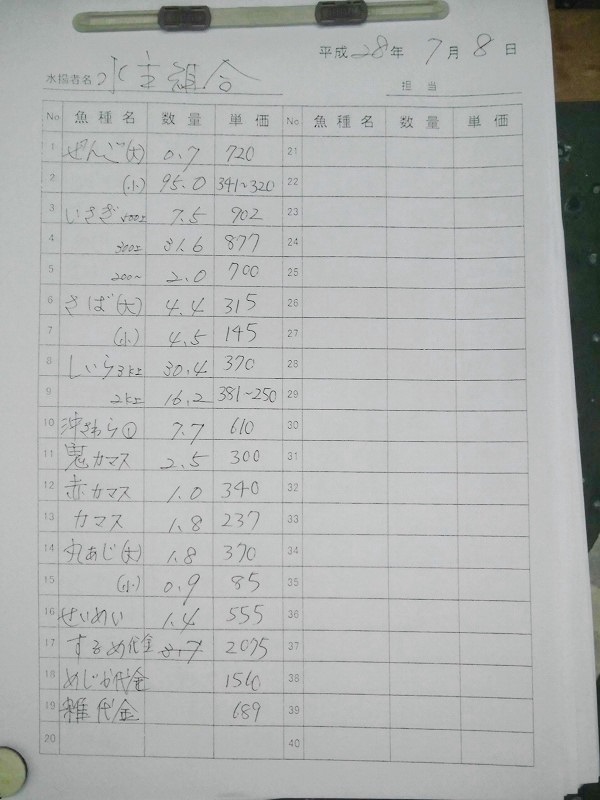 平成28年 7月 8日
水揚者名 水主組合
担当
No 魚種名 数量 単価 No 魚種名 数量 単価
1 ぜんご(大) 0.7 720 21
2 (小) 95.0 341~320 22
3 いさぎ 500上 7.5 902 23
4 300上 31.6 877 24
5 200~ 2.0 700 25
6 さば(大) 4.4 315 26
7 (小) 4.5 145 27
8 しいら 3k上 30.4 370 28
9 2k上 16.2 381~250 29
10 沖さわら① 7.7 610 30
11 鬼カマス 2.5 300 31
12 赤カマス 1.0 340 32
13 カマス 1.8 237 33
14 丸あじ(大) 1.8 370 34
15 (小) 0.9 85 35
16 せいめい 1.4 555 36
17 するめ代金 3.7 2075 37
18 めじか代金 1560 38
19 雑代金 689 39
20 40